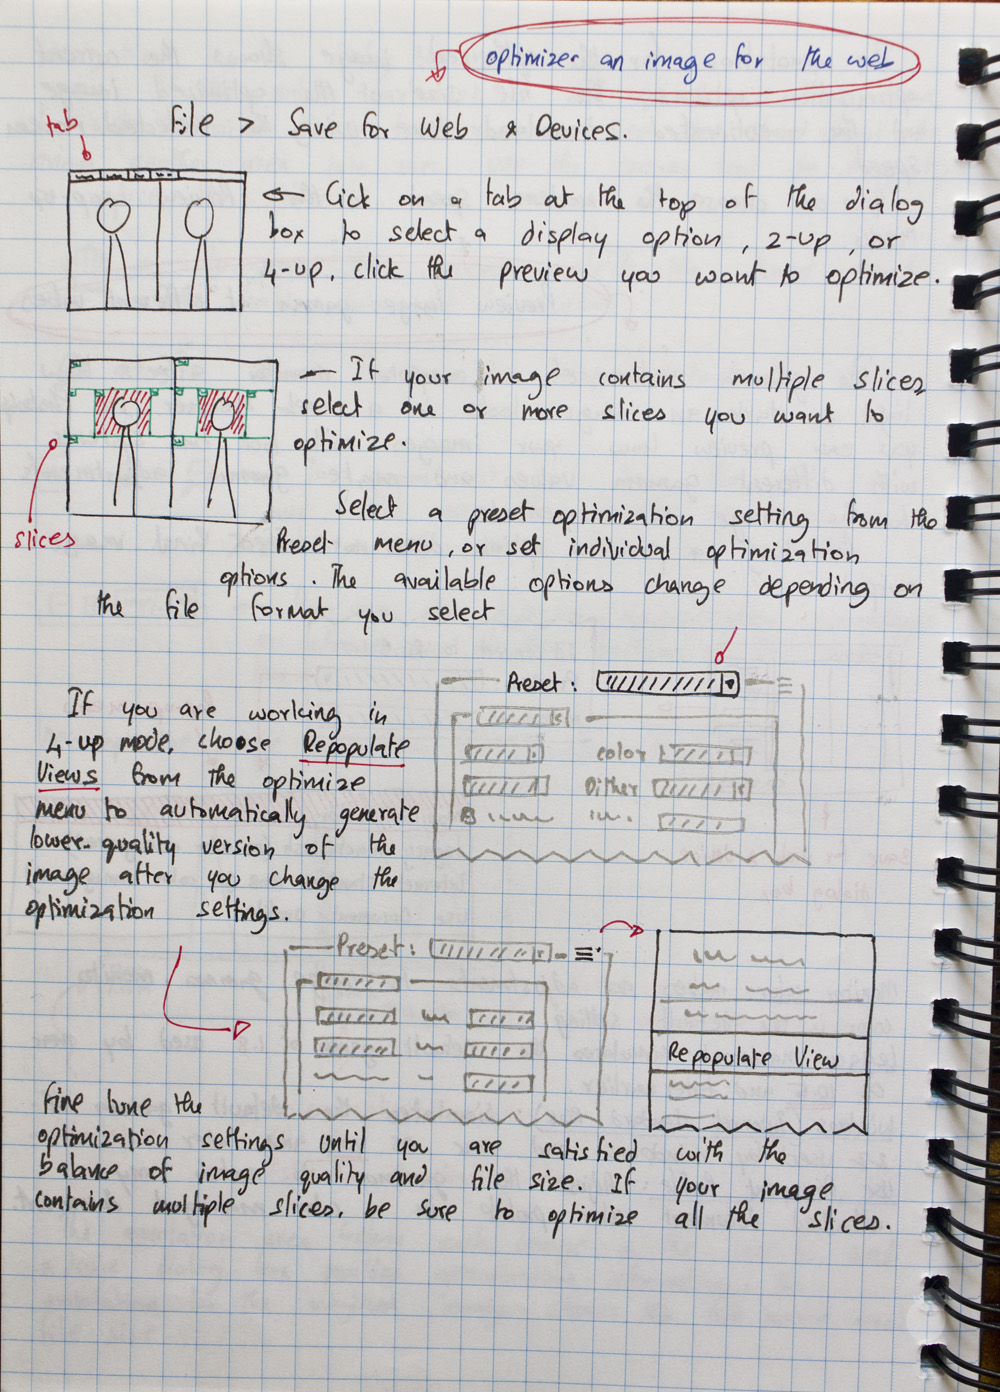 optimizer an image for the web
File > Save for Web & Devices.
tab
← Cick on a tab at the top of the dialog
box to select a display option, 2-up, or
4-up, click the preview you want to optimize.
If your image contains multiple slices
select one or more slices you want to
optimize.
slices
Select a preset optimization setting from the
Preset menu, or set individual optimization
options. The available options change depending on
the file format you select
Preset:
color
Dither
If you are working in
4-up mode, choose Repopulate
Views from the optimize
menu to automatically generate
lower-quality version of the
image after you change the
optimization settings.
Preset:
Repopulate View
Fine tune the
optimization settings until you are satisfied with the
balance of image quality and file size. If your image
contains multiple slices, be sure to optimize all the slices.